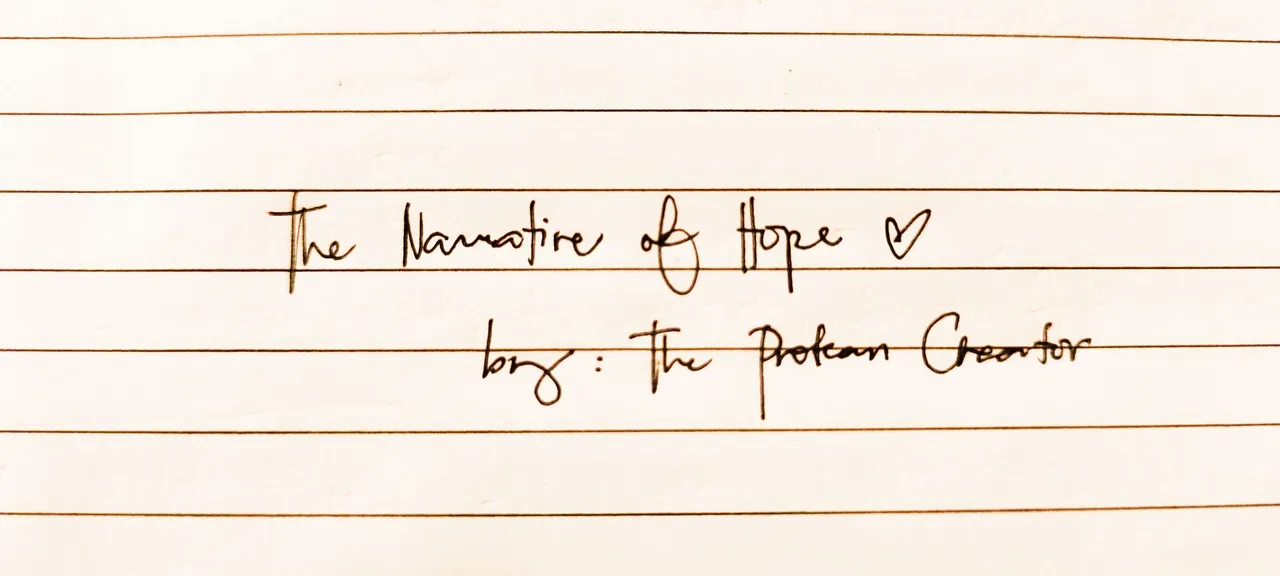 The Narrative of Hope ♡
by: The Protean Creator